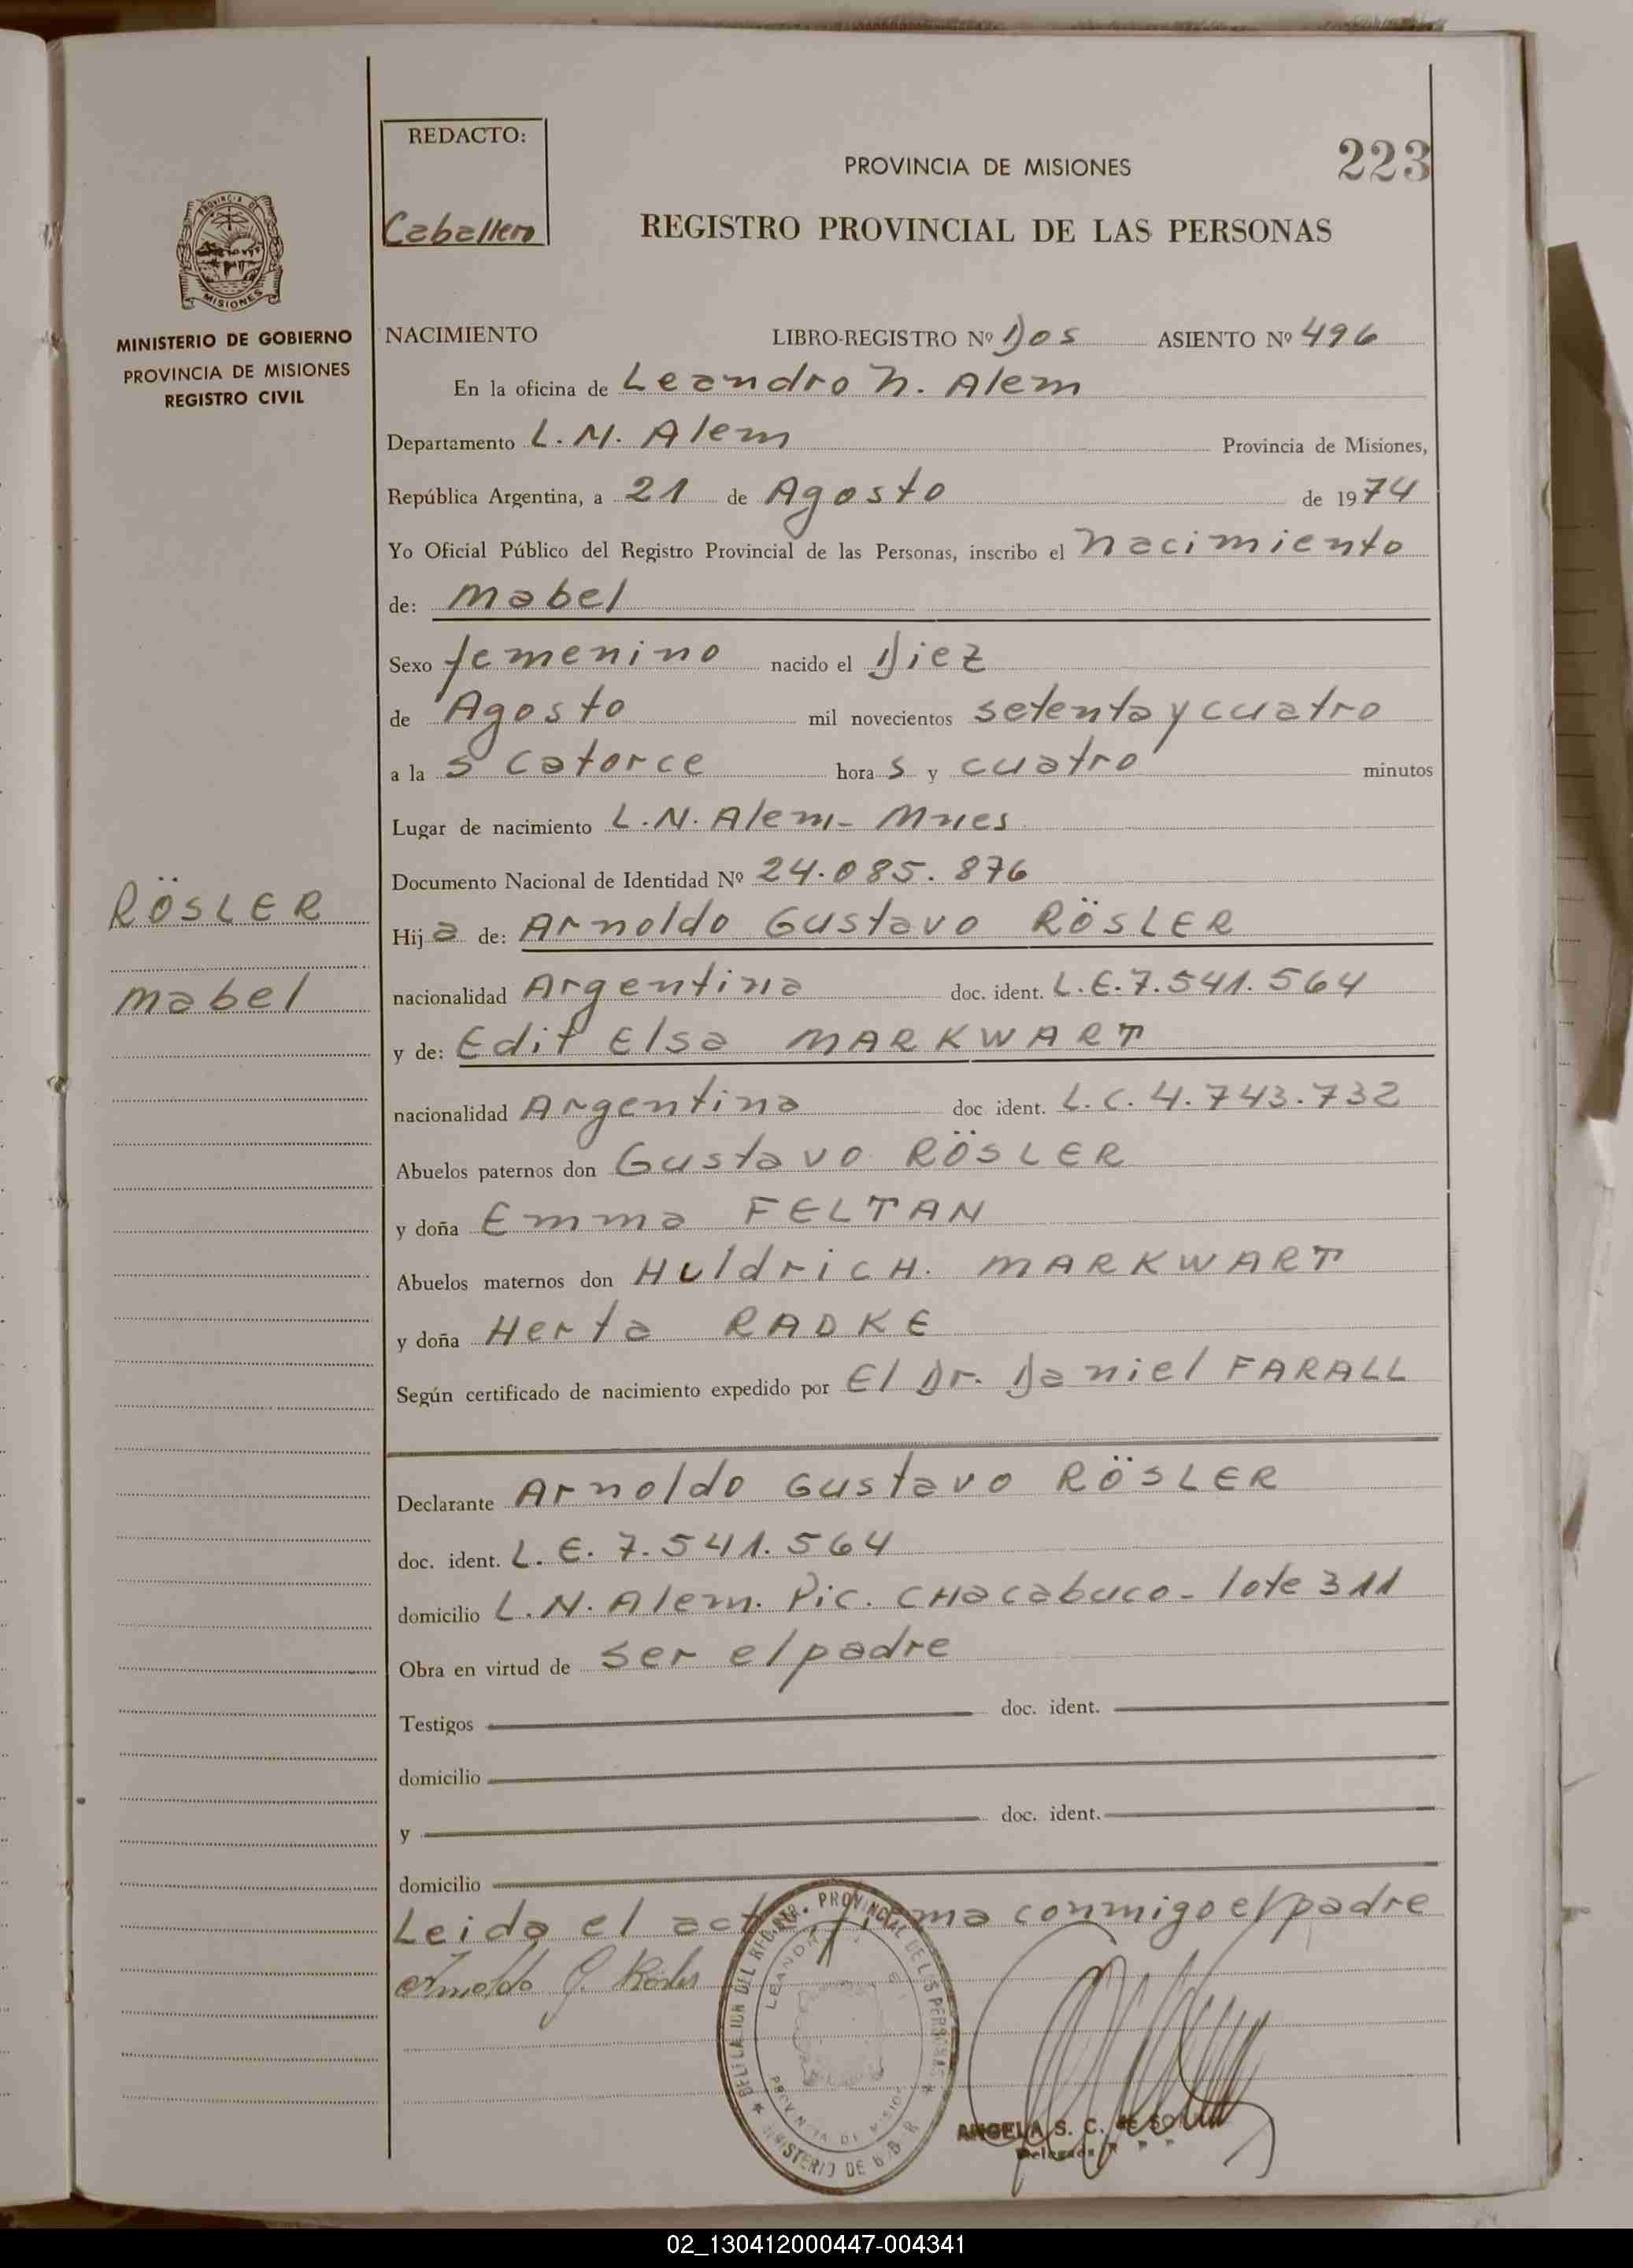 REDACTO:
Caballero
PROVINCIA DE MISIONES
223
REGISTRO PROVINCIAL DE LAS PERSONAS
PROVINCIA DE
MISIONES
MINISTERIO DE GOBIERNO
PROVINCIA DE MISIONES
REGISTRO CIVIL
NACIMIENTO LIBRO-REGISTRO Nº Dos ASIENTO Nº 496
En la oficina de Leandro N. Alem
Departamento L. N. Alem Provincia de Misiones,
República Argentina, a 21 de Agosto de 1974
Yo Oficial Público del Registro Provincial de las Personas, inscribo el nacimiento
de: Mabel
Sexo femenino nacido el Diez
de Agosto mil novecientos setenta y cuatro
a la s catorce hora s y cuatro minutos
Lugar de nacimiento L. N. Alem - Mnes
Documento Nacional de Identidad Nº 24.085.876
RÖSLER
Mabel
Hij a de: Arnoldo Gustavo RÖSLER
nacionalidad Argentina doc. ident. L.E. 7.541.564
y de: Edit Elsa MARKWART
nacionalidad Argentina doc ident. L.C. 4.743.732
Abuelos paternos don Gustavo RÖSLER
y doña Emma FELTAN
Abuelos maternos don HuldricH. MARKWART
y doña Herta RADKE
Según certificado de nacimiento expedido por El Dr. Daniel FARALL
Declarante Arnoldo Gustavo RÖSLER
doc. ident. L. E. 7.541.564
domicilio L. N. Alem. Pic. CHacabuco - lote 311
Obra en virtud de ser el padre
Testigos doc. ident.
domicilio
y doc. ident.
domicilio
Leida el acta firma conmigo el padre
Arnoldo G. Rösler
PROVINCIAL DE LAS PERSONAS
PROVINCIA DE MISIONES
MINISTERIO DE
ANGELA S. C. de
Delegada
02_130412000447-004341